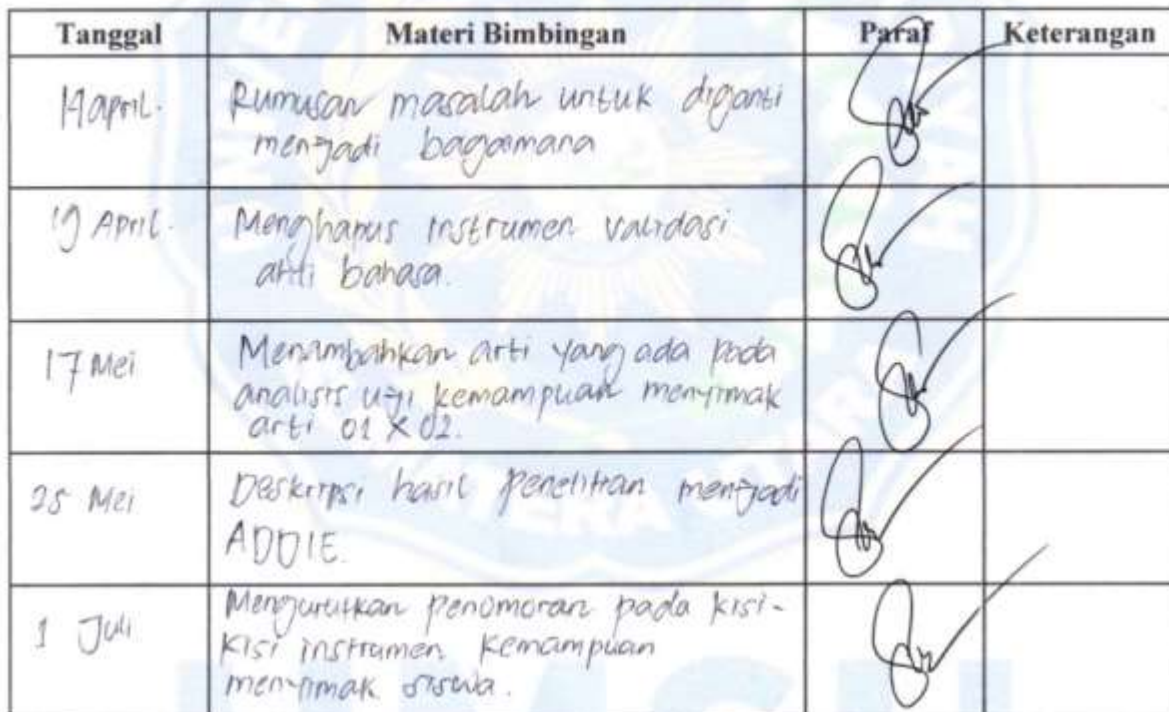 Tanggal Materi Bimbingan Paraf Keterangan
14 april. Rumusan masalah untuk diganti
menjadi bagaimana
19 April. Menghapus instrumen validasi
ahli bahasa.
17 Mei Menambahkan arti yang ada pada
analisis uji kemampuan menyimak
arti 01 X 02.
25 Mei Deskripsi hasil penelitian menjadi
ADDIE.
1 Juli Mengurutkan penomoran pada kisi-
kisi instrumen kemampuan
menyimak siswa.